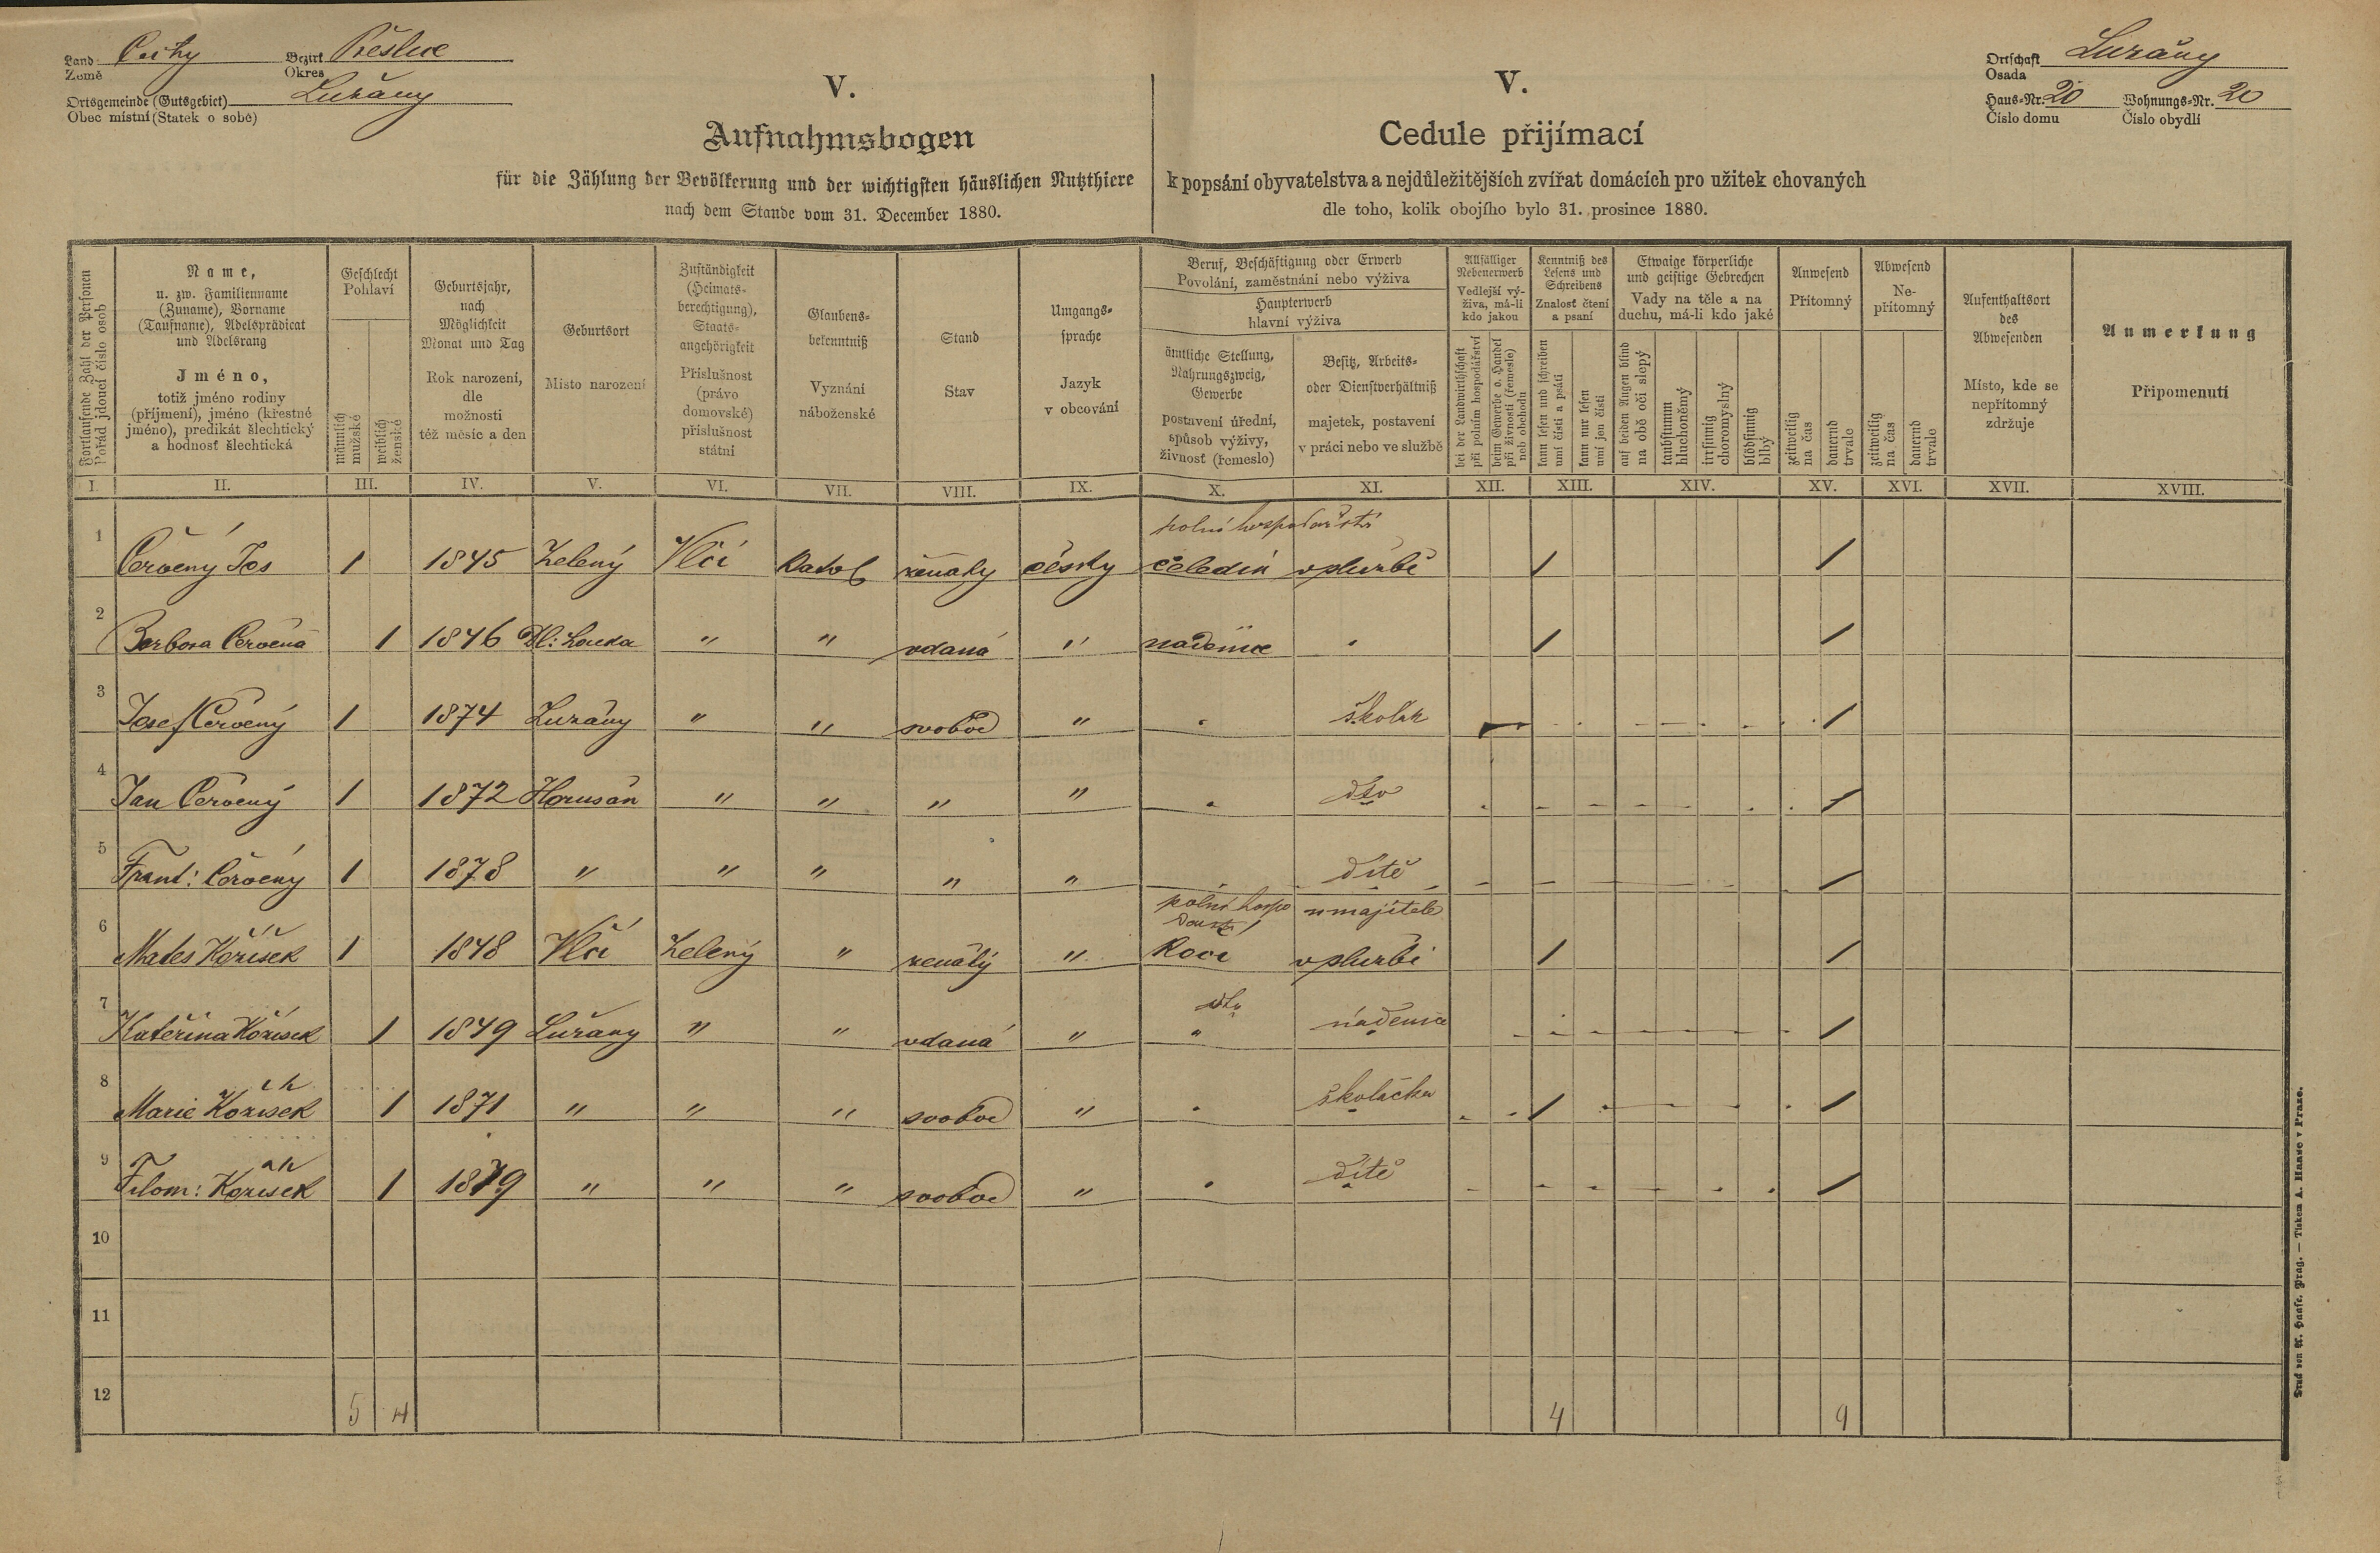 Land Čechy Bezirk Přeštice
Země Okres
Ortsgemeinde (Gutsgebiet) Lužany
Obec místní (Statek o sobě)
V.
Aufnahmsbogen
für die Zählung der Bevölkerung und der wichtigsten häuslichen Nutzthiere
nach dem Stande vom 31. December 1880.
V.
Cedule přijímací
k popsání obyvatelstva a nejdůležitějších zvířat domácích pro užitek chovaných
dle toho, kolik obojího bylo 31. prosince 1880.
Ortschaft Lužany
Osada
Haus-Nr. 20 Wohnungs-Nr. 20
Číslo domu Číslo obydlí
Fortlaufende Zahl der Personen
Pořád jdoucí číslo osob
Name,
u. zw. Familienname
(Zuname), Vorname
(Taufname), Adelsprädicat
und Adelsrang
Jméno,
totiž jméno rodiny
(příjmení), jméno (křestné
jméno), predikát šlechtický
a hodnosť šlechtická
Geschlecht
Pohlaví
männlich
mužské
weiblich
ženské
Geburtsjahr,
nach
Möglichkeit
Monat und Tag
Rok narození,
dle
možnosti
též měsíc a den
Geburtsort
Místo narození
Zuständigkeit
(Heimats-
berechtigung),
Staats-
angehörigkeit
Příslušnost
(právo
domovské)
příslušnost
státní
Glaubens-
bekenntniß
Vyznání
náboženské
Stand
Stav
Umgangs-
sprache
Jazyk
v obcování
Beruf, Beschäftigung oder Erwerb
Povolání, zaměstnání nebo výživa
Haupterwerb
hlavní výživa
ämtliche Stellung,
Nahrungszweig,
Gewerbe
postavení úřední,
spůsob výživy,
živnosť (řemeslo)
Besitz, Arbeits-
oder Dienstverhältniß
majetek, postavení
v práci nebo ve službě
Allfälliger
Nebenerwerb
Vedlejší vý-
živa, má-li
kdo jakou
bei der Landwirthschaft
při polním hospodářství
beim Gewerbe o. Handel
při živnosti (řemesle)
neb obchodu
Kenntniß des
Lesens und
Schreibens
Znalosť čtení
a psaní
kann lesen und schreiben
umí čísti a psáti
kann nur lesen
umí jen čísti
Etwaige körperliche
und geistige Gebrechen
Vady na těle a na
duchu, má-li kdo jaké
auf beiden Augen blind
na obě oči slepý
taubstumm
hluchoněmý
irrsinnig
choromyslný
blödsinnig
blbý
Anwesend
Přítomný
zeitweilig
na čas
dauernd
trvale
Abwesend
Ne-
přítomný
zeitweilig
na čas
dauernd
trvale
Aufenthaltsort
des
Abwesenden
Místo, kde se
nepřítomný
zdržuje
Anmerkung
Připomenutí
I. II. III. IV. V. VI. VII. VIII. IX. X. XI. XII. XIII. XIV. XV. XVI. XVII. XVIII.
polní hospodařství
1 Červený Jos 1 1845 Zelený Vlčí Katol ženatý česky čeledín v službě 1 1
2 Barbora Červená 1 1846 Dl: Louka " " vdaná " nadenice 1 1
3 Josef Červený 1 1874 Lužany " " svobod " školák 1
4 Jan Červený 1 1872 Horušan " " " " dto 1
5 Frant: Červený 1 1878 " " " " " dítě 1
polní hospo u majitele
6 Mates Kořísek 1 1848 Vlčí Zelený " ženatý " v službě 1 1
dto
7 Kateřina Kořísek 1 1849 Lužany " " vdaná " " nadenice 1
8 Marie Kořísek 1 1871 " " " svobod " školačka 1 1
9 Filom: Kořísek 1 1879 " " " svobod " dítě 1
10
11
12 5 4 4 9
Druck von A. Haase, Prag. — Tiskem A. Haase v Praze.